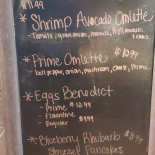 11.99
* Shrimp Avocado Omlette
- Tomato, green onion,
* Prime Omlette $10.99
- bell pepper, onion, mushroom, chees, Prime
* Eggs Benedict
- Prime $12.99
- Florentine
- Regular $9.99
* Blueberry Rhubarb $8.99
Streusel Pancakes